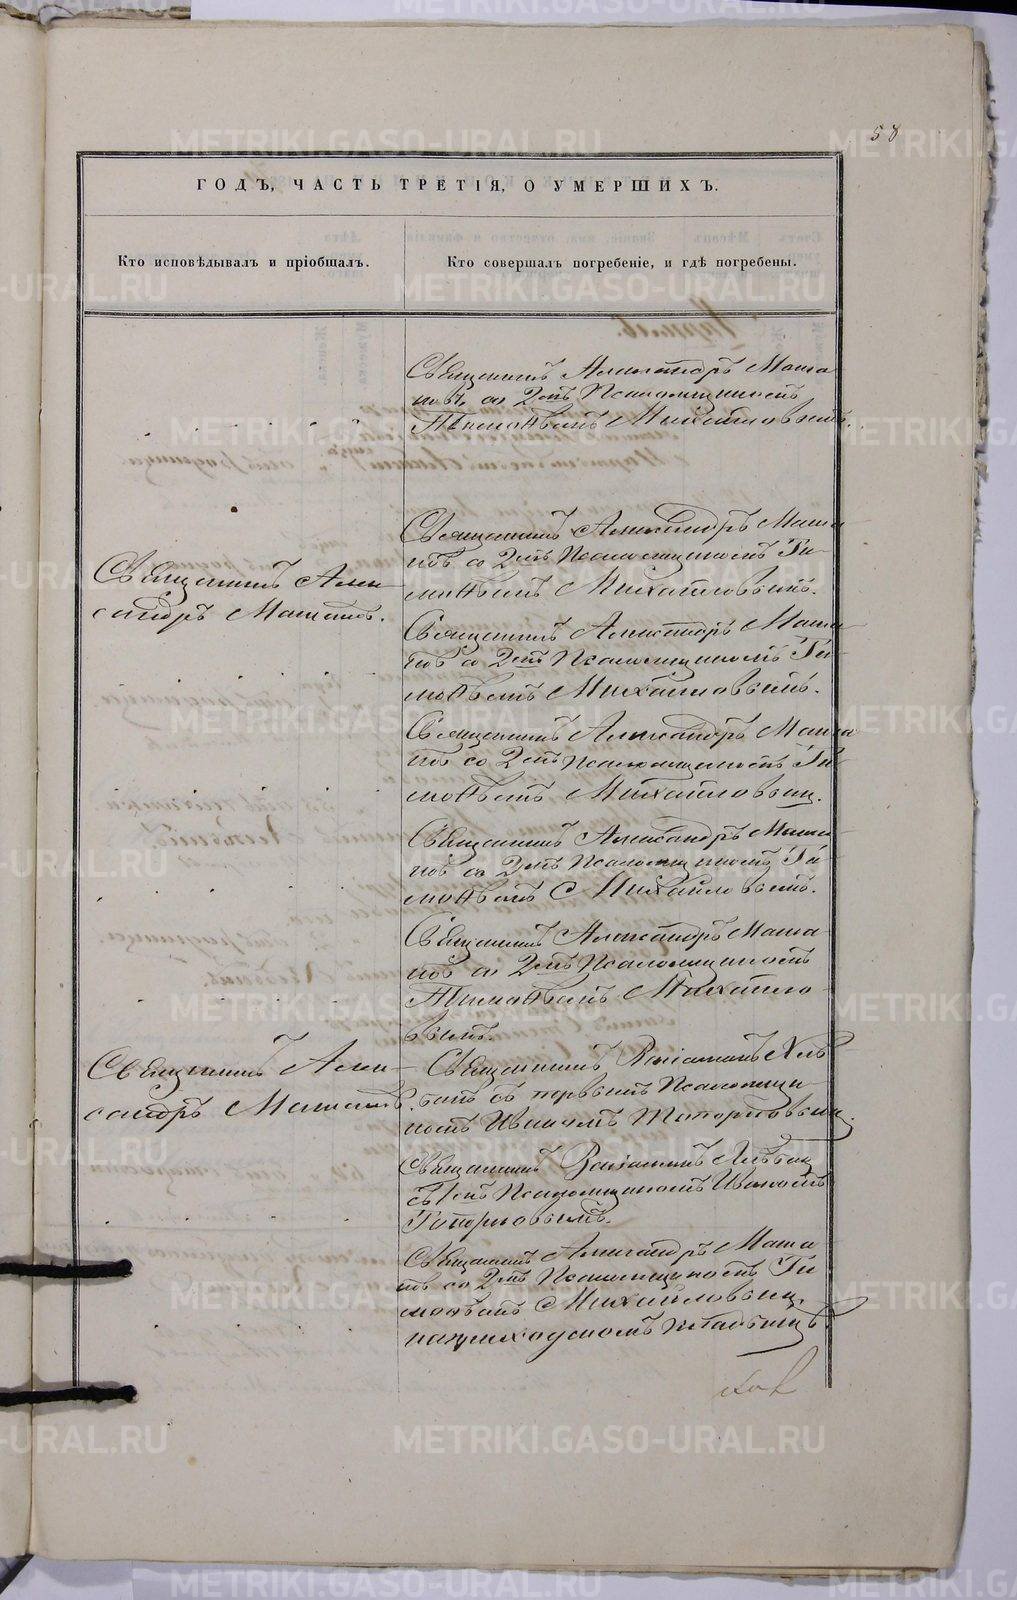 58
ГОДЪ, ЧАСТЬ ТРЕТІЯ, О УМЕРШИХЪ.
Кто исповѣдывалъ и пріобщалъ.
Кто совершалъ погребеніе, и гдѣ погребены.
Священникъ Александръ Маша
новъ со 2мъ Псаломщикомъ
Тимофѣемъ Михайловымъ.
Священникъ Александръ Маша
новъ со 2мъ Псаломщикомъ Ти-
мофѣемъ Михайловымъ.
Священникъ Алек
сандръ Машановъ.
Священникъ Александръ Маша
новъ со 2мъ Псаломщикомъ Ти-
мофѣемъ Михайловымъ.
Священникъ Александръ Маша
новъ со 2мъ Псаломщикомъ Ти-
мофѣемъ Михайловым.
Священникъ Александръ Маша
новъ со 2мъ Псаломщикомъ Ти-
мофѣемъ Михайловымъ.
Священникъ Александръ Маша-
новъ со 2мъ Псаломщикомъ
Тимофѣемъ Михайло-
вымъ.
Священникъ Алек-
сандръ Машановъ.
Священникъ
съ первымъ Псаломщи-
комъ Иваномъ Топорковым.
Священникъ
съ 1мъ Псаломщикомъ Иваномъ
Топорковымъ.
Священникъ Александръ Маша
новъ со 2мъ Псаломщикомъ Ти
мофѣемъ Михайловым.
на приходскомъ кладбищѣ
METRIKI.GASO-URAL.RU